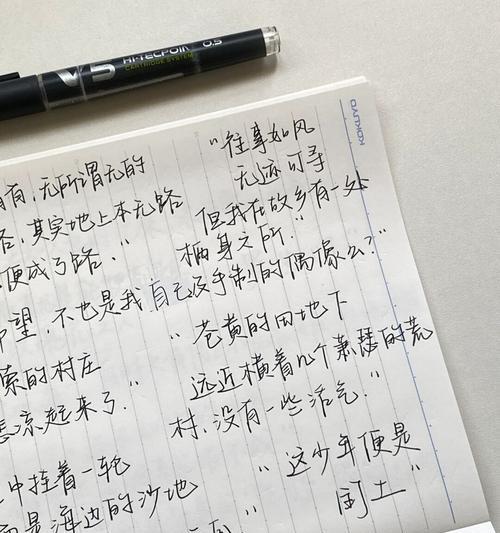 V5
HI-TECPOINT 0.5
CARTRIDGE SYSTEM
KOKUYO
有,无所谓无的
路,其实地上本无路
便成了路."
望,不也是我自己及手制的偶像么?"
索的村庄
悲凉起来了."
中挂着一轮
是海边的沙地
"往事如风
无迹可寻
但我在故乡有一处
栖身之所."
"苍黄的田地下
远近横着几个萧瑟的荒
村,没有一些活气."
"这少年便是
闰土"